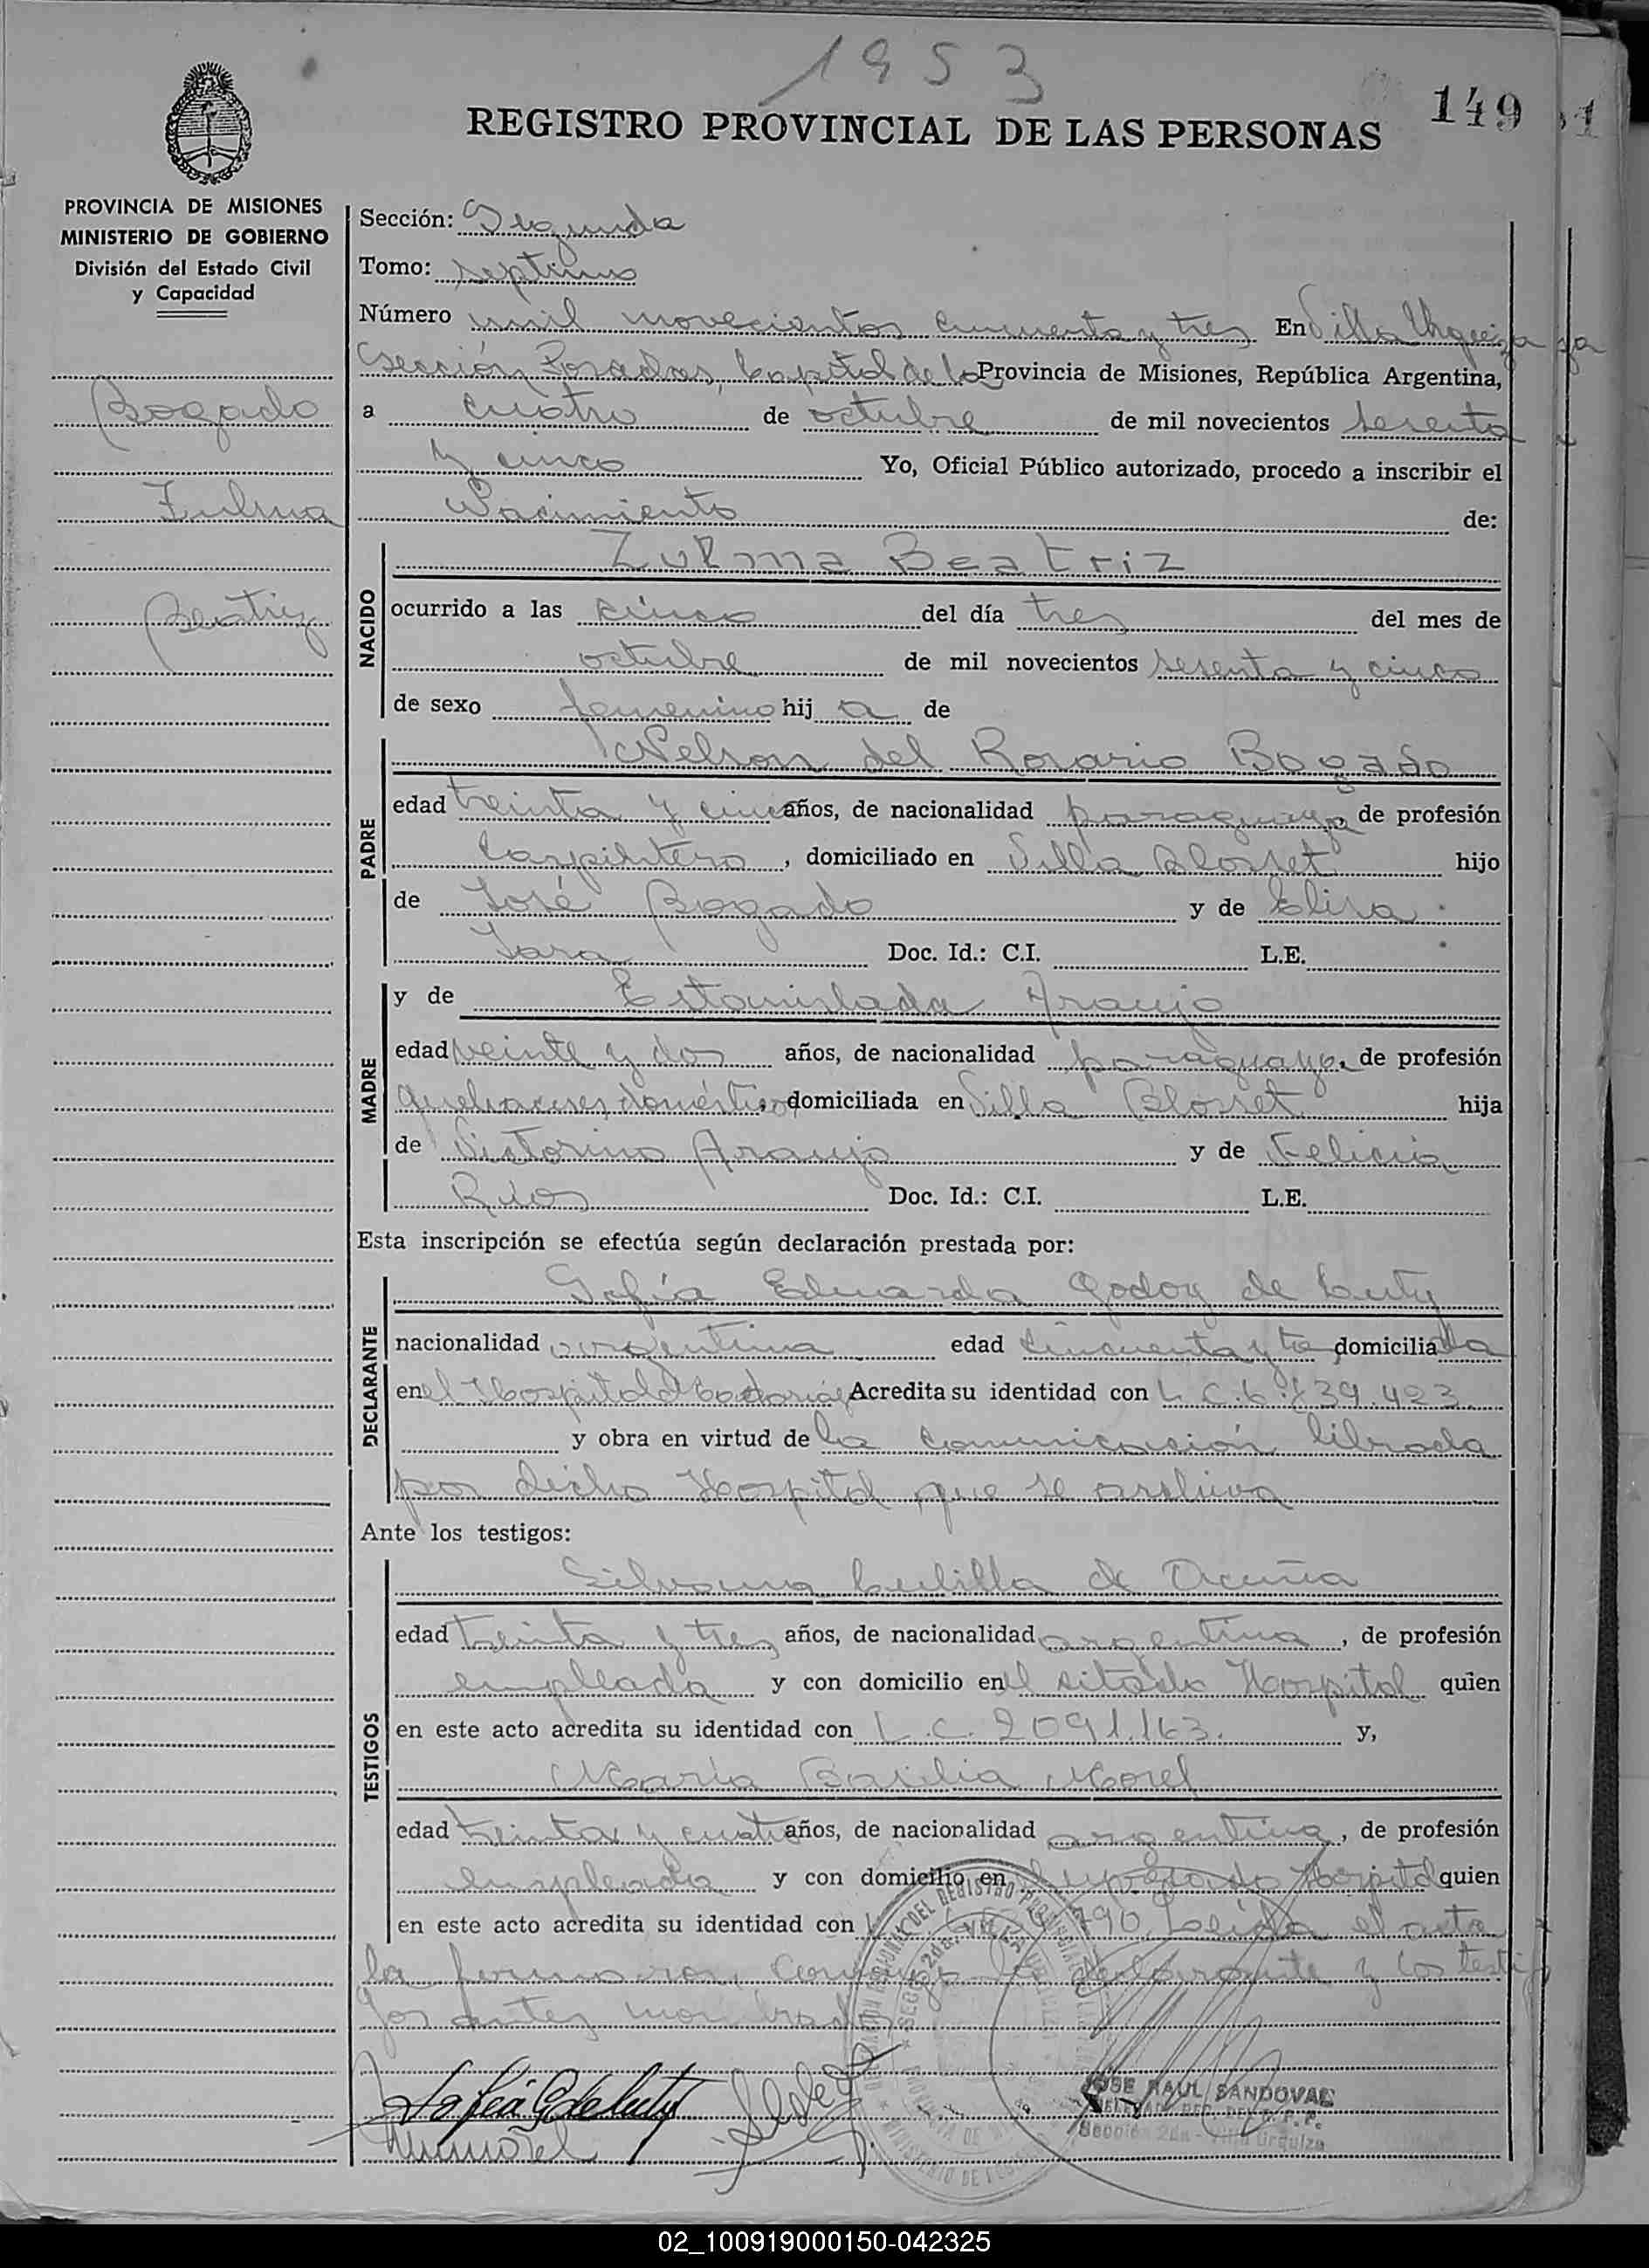 1953
149
REGISTRO PROVINCIAL DE LAS PERSONAS
PROVINCIA DE MISIONES
MINISTERIO DE GOBIERNO
División del Estado Civil
y Capacidad
Bogado
Zulma
Beatriz
Sección: Segunda
Tomo: septimo
Número mil novecientos cincuenta y tres En Villa Urquiza
Sección Posadas, Capital de la Provincia de Misiones, República Argentina,
a cuatro de octubre de mil novecientos sesenta
y cinco Yo, Oficial Público autorizado, procedo a inscribir el
Nacimiento de:
NACIDO
Zulma Beatriz
ocurrido a las cinco del día tres del mes de
octubre de mil novecientos sesenta y cinco
de sexo femenino hij a de
PADRE
Nelson del Rosario Bogado
edad treinta y cinco años, de nacionalidad paraguaya de profesión
Carpintero, domiciliado en Villa Blosset hijo
de José Bogado y de Elisa
Jara Doc. Id.: C.I. L.E.
MADRE
y de Estanislada Araujo
edad veinte y dos años, de nacionalidad paraguaya, de profesión
quehaceres domésticos domiciliada en Villa Blosset hija
de Victorino Araujo y de Felicia
Rios Doc. Id.: C.I. L.E.
Esta inscripción se efectúa según declaración prestada por:
DECLARANTE
Sofía Eduarda Godoy de Luty
nacionalidad argentina edad cincuenta y tres domiciliada
en el Hospital Acredita su identidad con L.C. 6.839.423
y obra en virtud de la comunicación librada
por dicho Hospital que se archiva
Ante los testigos:
TESTIGOS
Silvana de Acuña
edad treinta y tres años, de nacionalidad argentina, de profesión
empleada y con domicilio en el sitado Hospital quien
en este acto acredita su identidad con L.C. 2091.163. y,
María Basilia Morel
edad treinta y cuatro años, de nacionalidad argentina, de profesión
empleada y con domicilio en Hospital quien
en este acto acredita su identidad con 790. Leida el acta
la firmaron, conmigo la declarante y los testi
gos antes nombrados
Sofía G de Luty
JOSE RAUL SANDOVAL
Sección 2da - Villa Urquiza
02_100919000150-042325